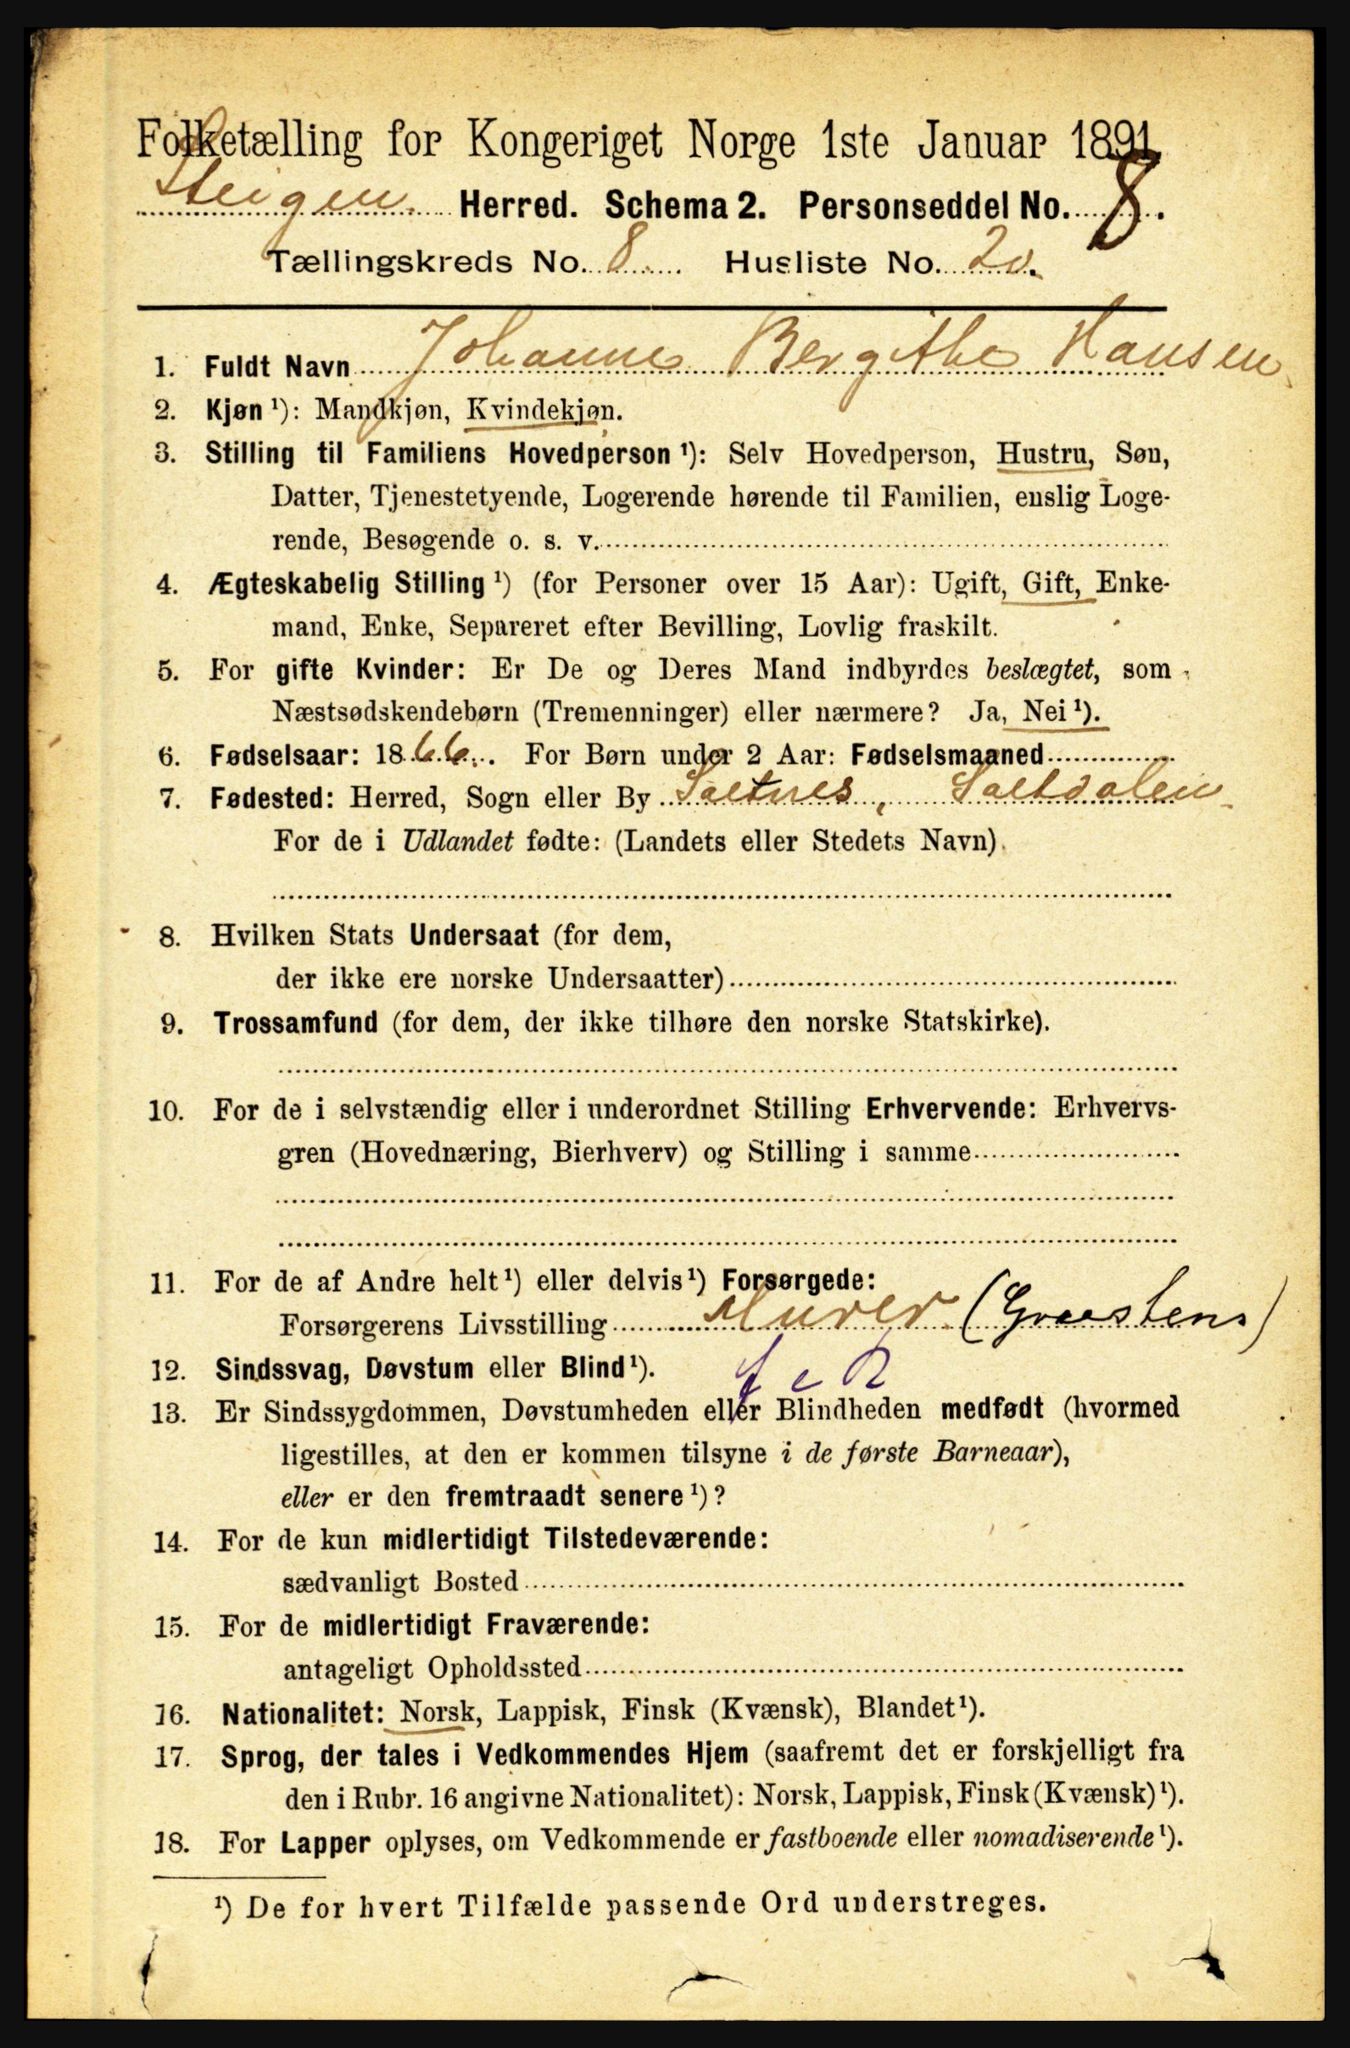 Folketælling for Kongeriget Norge 1ste Januar 1891.
Steigen. Herred. Schema 2. Personseddel No. 8.
Tællingskreds No. 8. Husliste No. 20.
1. Fuldt Navn Johanne Bergithe Hansen.
2. Kjøn ¹): Mandkjøn, Kvindekjøn.
3. Stilling til Familiens Hovedperson ¹): Selv Hovedperson, Hustru, Søn,
Datter, Tjenestetyende, Logerende hørende til Familien, enslig Loge-
rende, Besøgende o. s. v.
4. Ægteskabelig Stilling ¹) (for Personer over 15 Aar): Ugift, Gift, Enke-
mand, Enke, Separeret efter Bevilling, Lovlig fraskilt.
5. For gifte Kvinder: Er De og Deres Mand indbyrdes beslægtet, som
Næstsødskendebørn (Tremenninger) eller nærmere? Ja, Nei ¹).
6. Fødselsaar: 1866. For Børn under 2 Aar: Fødselsmaaned
7. Fødested: Herred, Sogn eller By Saltnes, Saltdalen
For de i Udlandet fødte: (Landets eller Stedets Navn)
8. Hvilken Stats Undersaat (for dem,
der ikke ere norske Undersaatter)
9. Trossamfund (for dem, der ikke tilhøre den norske Statskirke).
10. For de i selvstændig eller i underordnet Stilling Erhvervende: Erhvervs-
gren (Hovednæring, Bierhverv) og Stilling i samme
11. For de af Andre helt ¹) eller delvis ¹) Forsørgede:
Forsørgerens Livsstilling Murer (Graastens)
12. Sindssvag, Døvstum eller Blind ¹).
13. Er Sindssygdommen, Døvstumheden eller Blindheden medfødt (hvormed
ligestilles, at den er kommen tilsyne i de første Barneaar),
eller er den fremtraadt senere ¹)?
14. For de kun midlertidigt Tilstedeværende:
sædvanligt Bosted
15. For de midlertidigt Fraværende:
antageligt Opholdssted
16. Nationalitet: Norsk, Lappisk, Finsk (Kvænsk), Blandet ¹).
17. Sprog, der tales i Vedkommendes Hjem (saafremt det er forskjelligt fra
den i Rubr. 16 angivne Nationalitet): Norsk, Lappisk, Finsk (Kvænsk) ¹).
18. For Lapper oplyses, om Vedkommende er fastboende eller nomadiserende ¹).
¹) De for hvert Tilfælde passende Ord understreges.